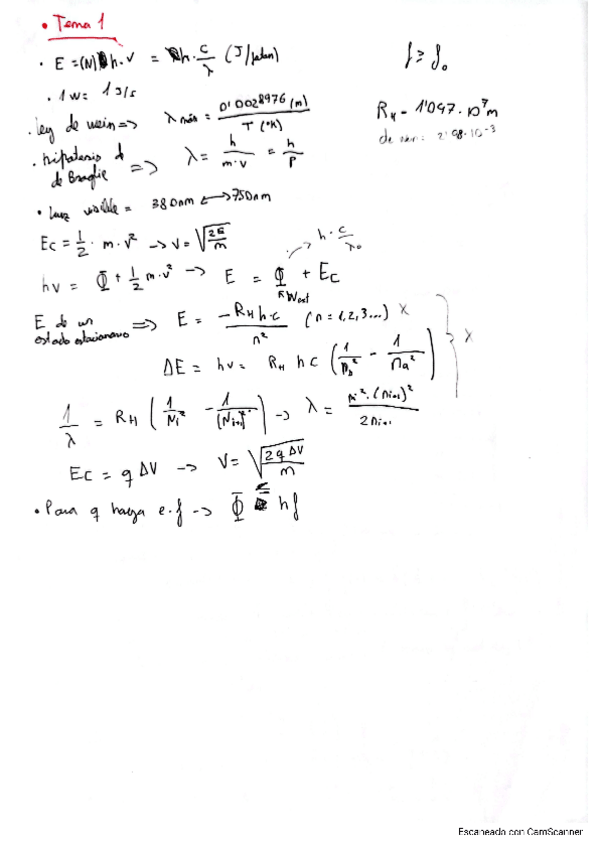 • Tema 1
• E = (N) h·ν = h · c/λ (J/foton)
f ≥ f₀
• 1 W = 1 J/s
. ley de wein => λ máx = 0'0028976 (m) / T (°K)
R_H = 1'097 · 10⁷ m
. hipotesis d de Broglie => λ = h/(m·v) = h/P
• Luz visible = 380nm ↔ 750nm
Ec = 1/2 · m·v² → v = √(2E/m)
h · c/λ₀
hν = Φ + 1/2 m·v² → E = Φ + Ec
W ext
E de un estado estacionario => E = -R_H h·c / n² (n = 1,2,3...) X
ΔE = hν = R_H hc (1/n_b² - 1/n_a²) X
1/λ = R_H (1/N_i² - 1/(N_i+1)²) → λ = n_i² · (n_i+1)² / 2n_i+1
Ec = q ΔV → V = √(2qΔV/m)
• Para q haya e·f → Φ ≤ hf
Escaneado con CamScanner